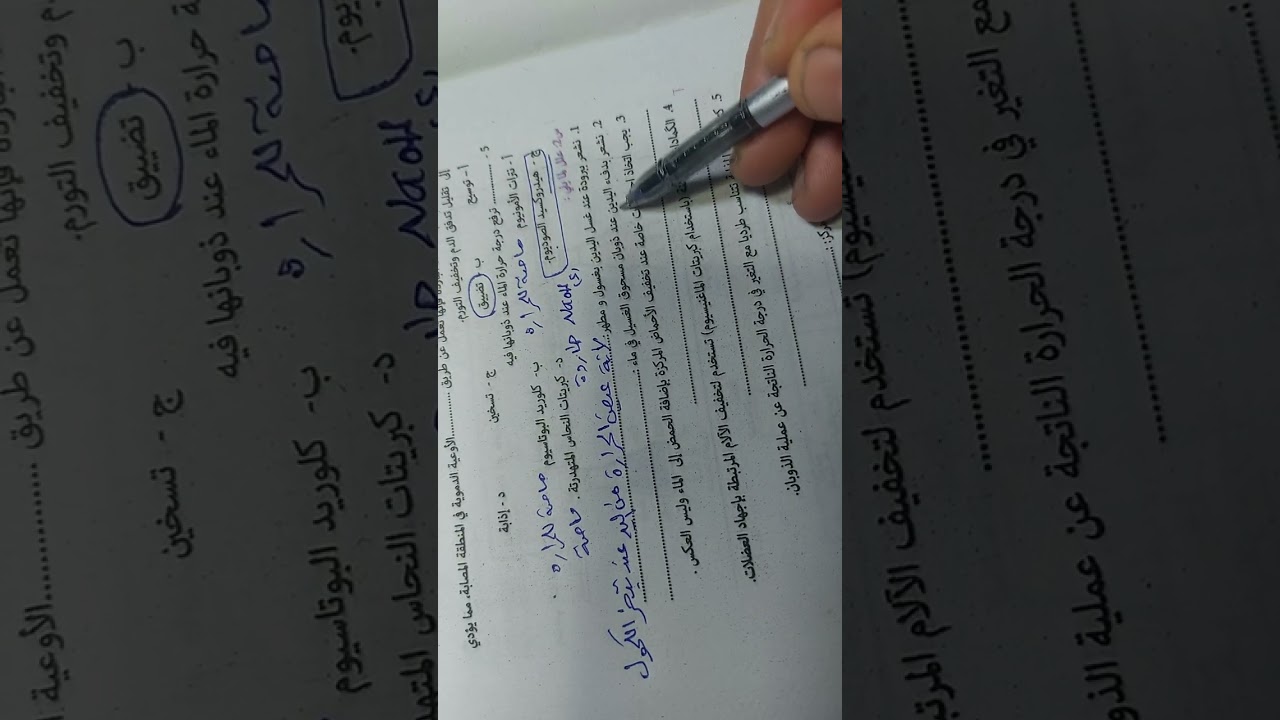 الأوعية الدموية في المنطقة المصابة، مما يؤدي
إلى تقليل تدفق الدم وتخفيف التورم.
أ - توسيع ب - تضييق ج - تسخين د - إذابة
5 - ........ ترفع درجة حرارة الماء عند ذوبانها فيه
أ - نترات الأمونيوم ماصة للحرارة ب - كلوريد البوتاسيوم ماصة للحرارة
ج - هيدروكسيد الصوديوم. NaOH (s) طاردة د - كبريتات النحاس المتهدركة. ماصة
1. نشعر ببرودة عند غسل اليدين بغسول و مطهر
لانة عند تبخر الكحول
2. نشعر بدفء اليدين عند ذوبان مسحوق الغسيل في ماء :
3. يجب اتخاذ خاصة عند تخفيف الأحماض المركزة بإضافة الحمض إلى الماء وليس العكس .
4. (باستخدام كبريتات الماغنيسيوم) تستخدم لتخفيف الآلام المرتبطة بإجهاد العضلات.
5. تتناسب طرديا مع التغير في درجة الحرارة الناتجة عن عملية الذوبان.